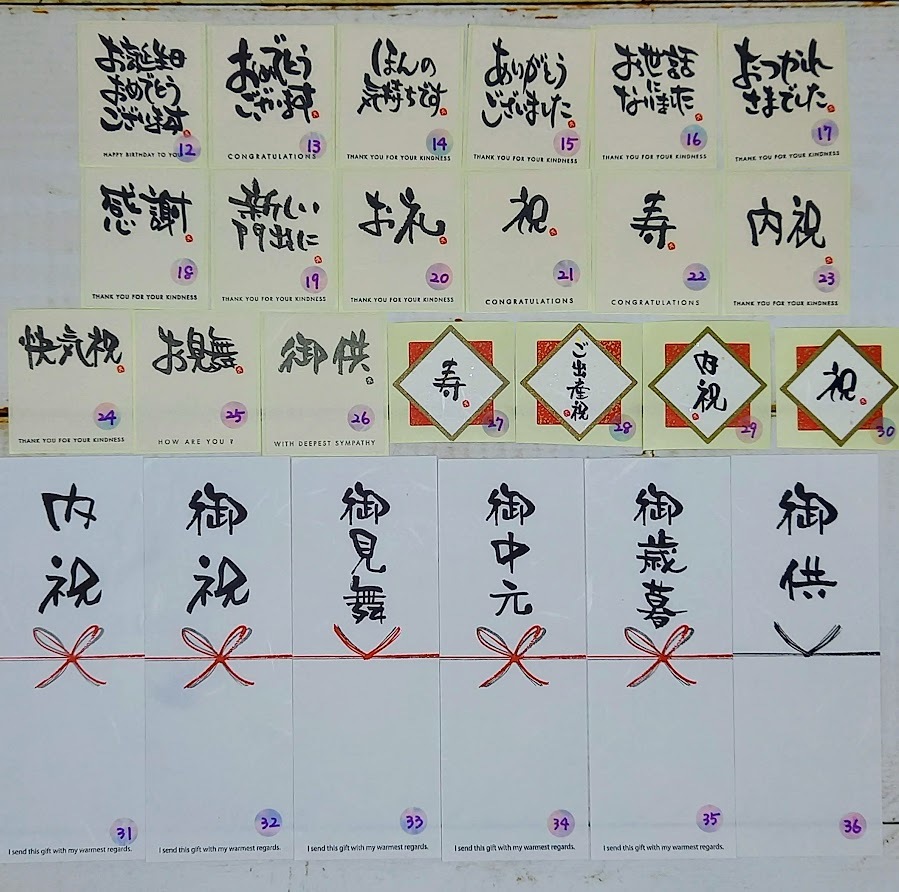 お誕生日
おめでとう
ございます
HAPPY BIRTHDAY TO YOU
12
おめでとう
ございます
CONGRATULATIONS
13
ほんの
気持ちです
THANK YOU FOR YOUR KINDNESS
14
ありがとう
ございました
THANK YOU FOR YOUR KINDNESS
15
お世話
に
なりました
THANK YOU FOR YOUR KINDNESS
16
おつかれ
さまでした
THANK YOU FOR YOUR KINDNESS
17
感謝
THANK YOU FOR YOUR KINDNESS
18
新しい
門出に
THANK YOU FOR YOUR KINDNESS
19
お礼
THANK YOU FOR YOUR KINDNESS
20
祝
CONGRATULATIONS
21
寿
CONGRATULATIONS
22
内祝
THANK YOU FOR YOUR KINDNESS
23
快気祝
THANK YOU FOR YOUR KINDNESS
24
お見舞
HOW ARE YOU ?
25
御供
WITH DEEPEST SYMPATHY
26
寿
27
ご出産祝
28
内祝
29
祝
30
内祝
31
I send this gift with my warmest regards.
御祝
32
I send this gift with my warmest regards.
御見舞
33
I send this gift with my warmest regards.
御中元
34
I send this gift with my warmest regards.
御歳暮
35
I send this gift with my warmest regards.
御供
36